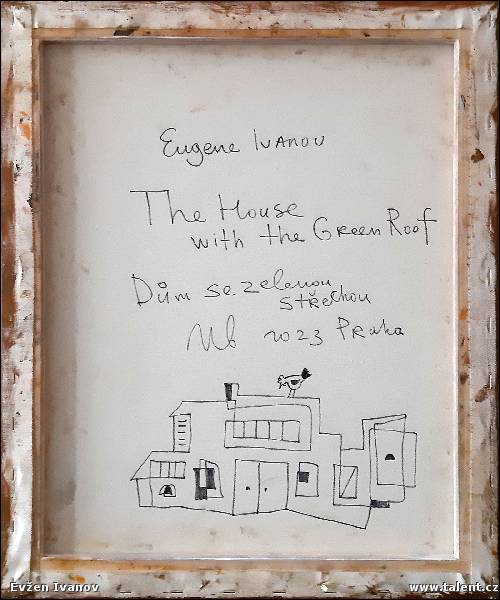 Eugene Ivanov
The House
with the Green Roof
Dům se zelenou
střechou
2023 Praha
Evžen Ivanov
www.talent.cz